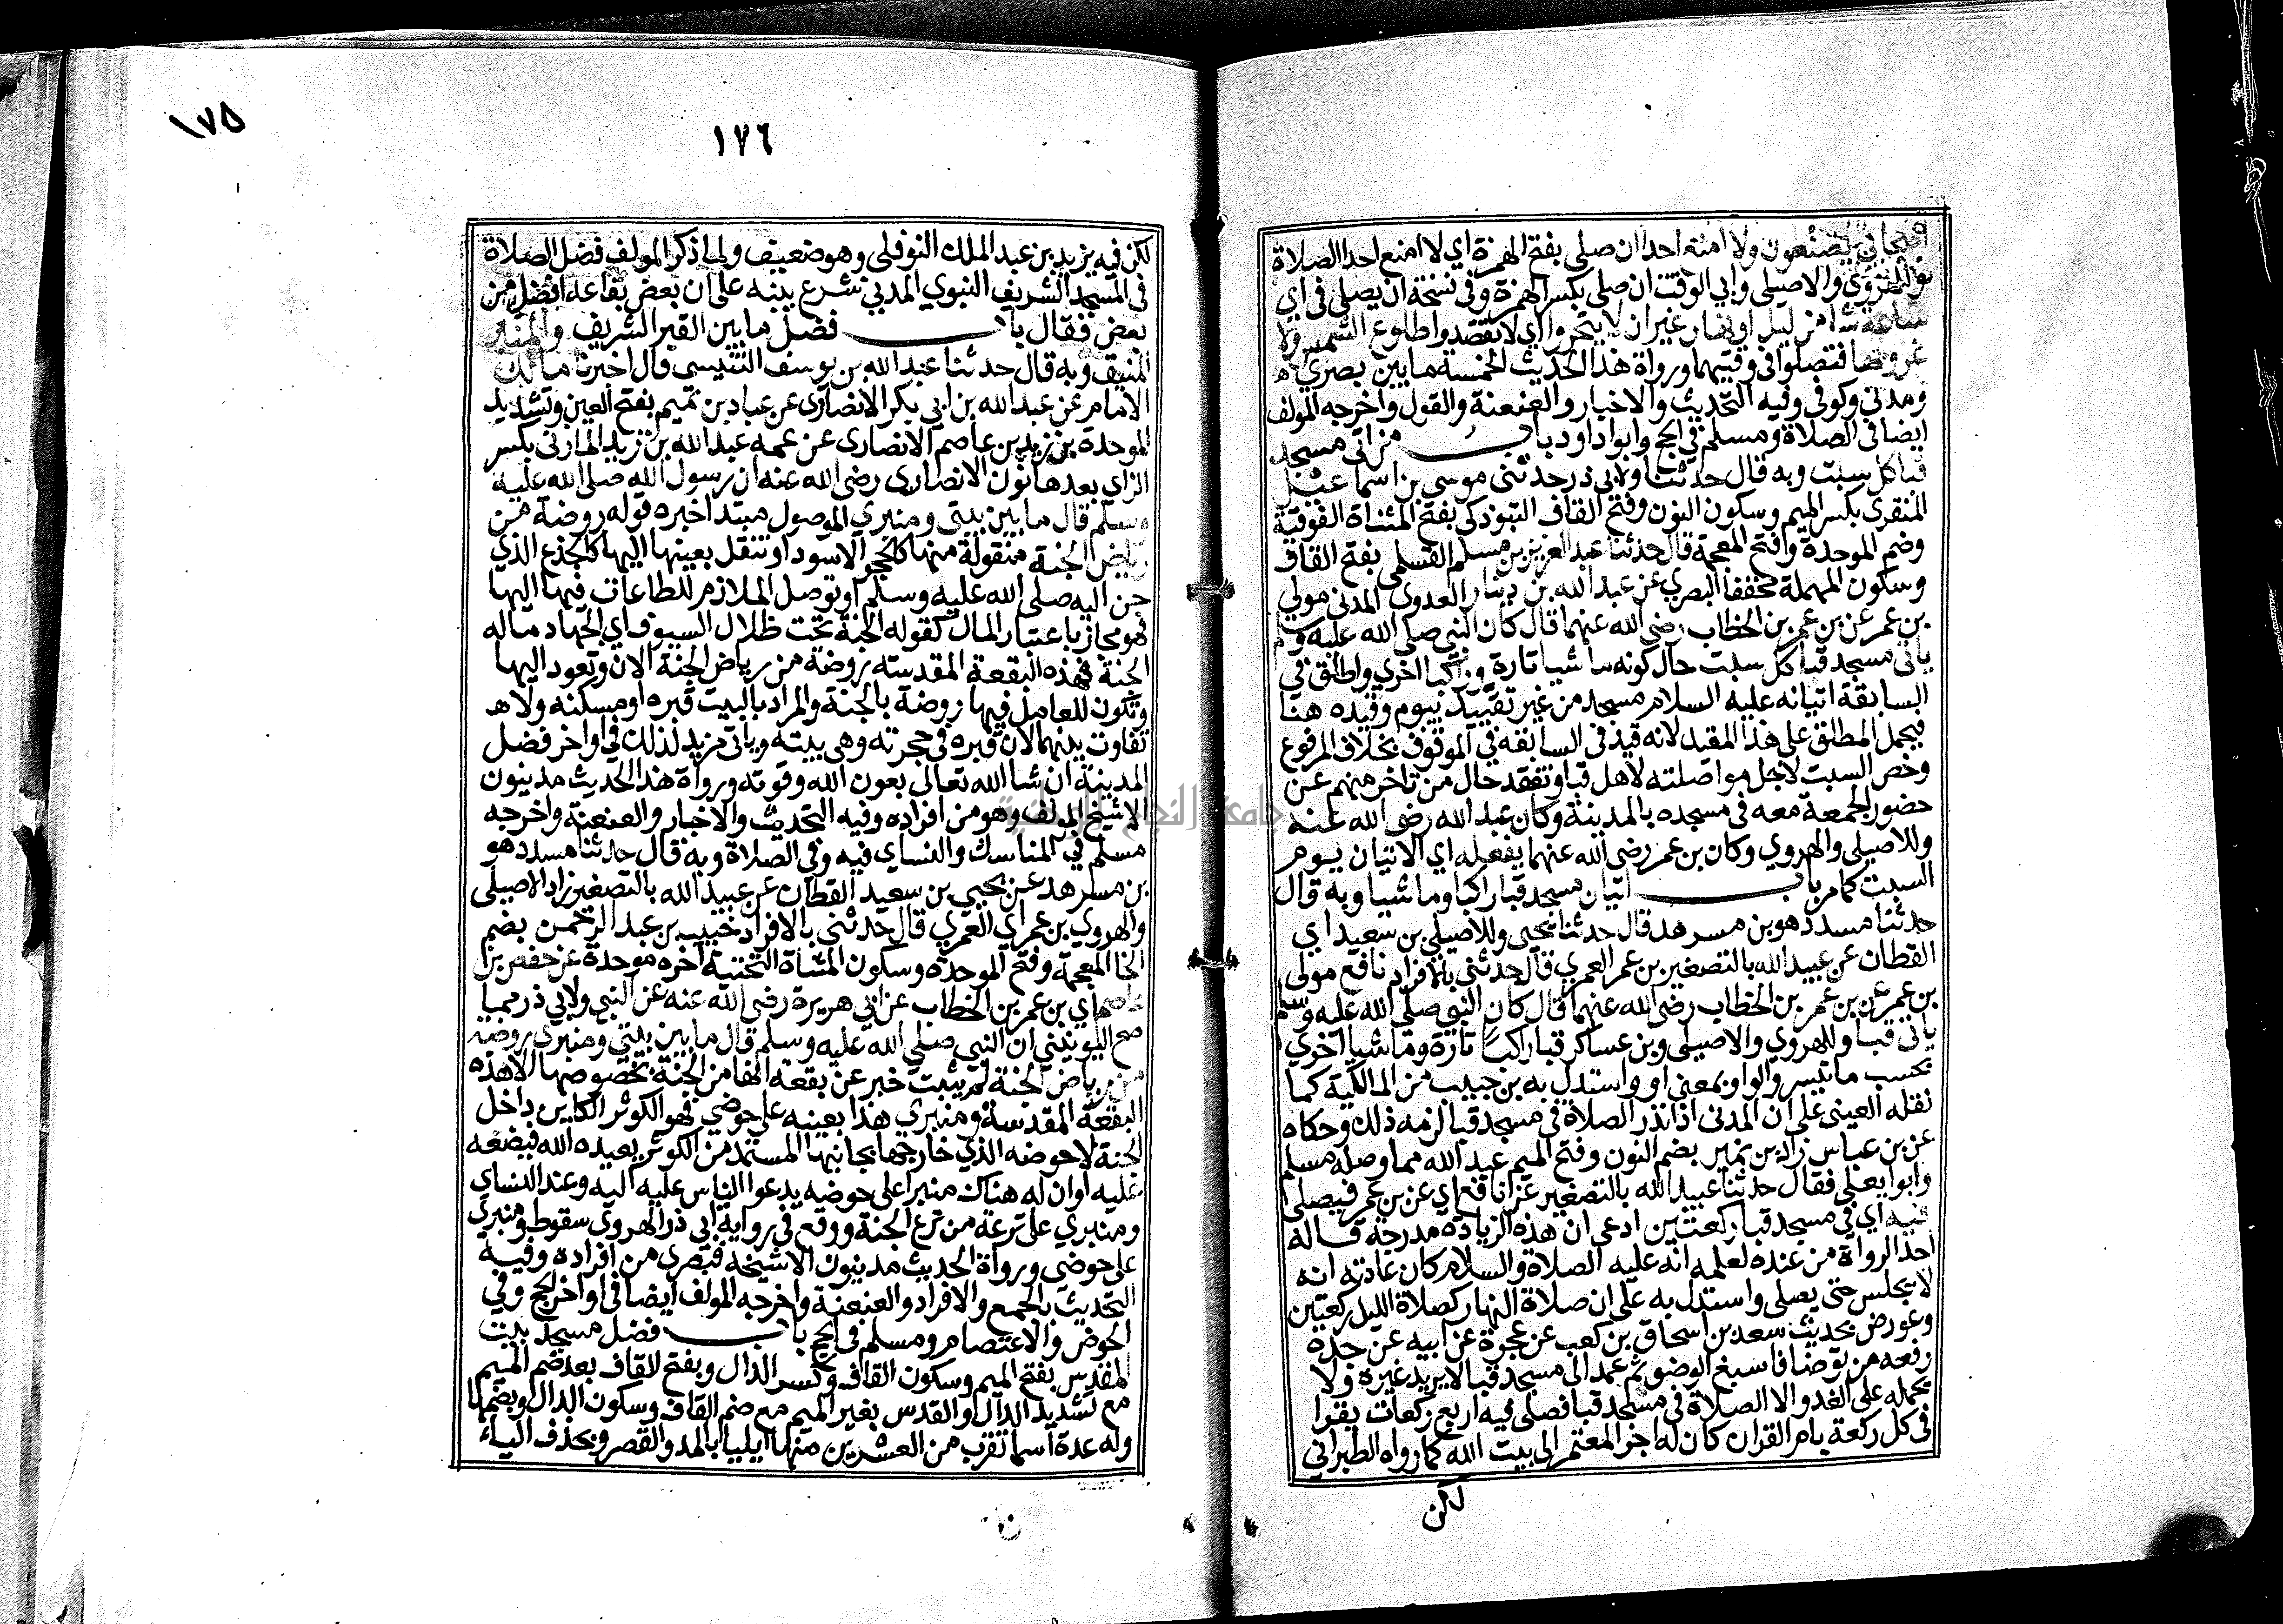 اصحابي يصنعون ولا امنع احدا ان صلى بفتح الهمزة اي لا امنع احدا الصلاة
وللهروي والاصيلي وابي الوقت ان صلى بكسر الهمزة وفي نسخة ان يصلي في اي
ساعة شا من ليل او نهار غير ان لا يتحروا اي لا تقصدوا طلوع الشمس ولا
غروبها فتصلوا في وقتيهما ورواة هذا الحديث الخمسة ما بين بصري
ومدني وكوفي وفيه التحديث والاخبار والعنعنة والقول واخرجه المولف
ايضا في الصلاة ومسلم في الحج وابو داود باب من اتى مسجد
قبا كل سبت وبه قال حدثنا ولابي ذر حدثني موسى بن اسماعيل
المنقري بكسر الميم وسكون النون وفتح القاف التبوذكي بفتح المثناة الفوقية
وضم الموحدة وفتح المعجمة قال حدثنا عبد العزيز بن مسلم القسملي بفتح القاف
وسكون المهملة مخففا البصري عن عبد الله بن دينار العدوي المدني مولى
بن عمر عن بن عمر بن الخطاب رضي الله عنهما قال كان النبي صلى الله عليه وسلم
ياتي مسجد قبا كل سبت حال كونه ماشيا تارة وراكبا اخري واطلق في
السابقة اتيانه عليه السلام مسجد من غير تقييد بيوم وقيده هنا
فيحمل المطلق على هذا المقيد لانه قيد في السابقة في الموقوف بخلاف المرفوع
وخص السبت لاجل مواصلته لاهل قبا وتفقد حال من تاخر منهم عن
حضور الجمعة معه في مسجده بالمدينة وكان عبد الله رضي الله عنه
وللاصيلي والهروي وكان بن عمر رضي الله عنهما يفعله اي الاتيان يوم
السبت كما مر باب اتيان مسجد قبا راكبا وماشيا وبه قال
حدثنا مسدد هو بن مسرهد قال حدثنا يحيى وللاصيلي بن سعيد اي
القطان عن عبيد الله بالتصغير بن عمر العمري قال حدثني بالافراد نافع مولى
بن عمر عن بن عمر بن الخطاب رضي الله عنهما قال كان النبي صلى الله عليه وسلم
ياتي قبا وللهروي والاصيلي وبن عساكر قبا راكبا تارة وماشيا اخري
بحسب ما تيسر والواو بمعنى او واستدل به بن حبيب من المالكية كما
نقله العيني على ان المدني اذا نذر الصلاة في مسجد قبا لزمه ذلك وحكاه
عن بن عباس زاد بن نمير بضم النون وفتح الميم عبد الله مما وصله مسلم
وابو ايعلي فقال حدثنا عبيد الله بالتصغير عن نافع اي عن بن عمر فيصلى
فيه اي في مسجد قبا ركعتين ادعى ان هذه الزيادة مدرجة قاله
احد الرواة من عنده لعلمه انه عليه الصلاة والسلام كان عادته انه
لا يجلس حتى يصلى واستدل به على ان صلاة النهار كصلاة الليل ركعتين
وعورض بحديث سعد بن اسحاق بن كعب عن عجرة عن ابيه عن جده
رفعه من توضا فاسبغ الوضو ثم عمد الى مسجد قبا لا يريد غيره ولا
يحمله على الغدو الا الصلاة في مسجد قبا فصلى فيه اربع ركعات يقرا
في كل ركعة بام القران كان له اجر المعتمر الى بيت الله كما رواه الطبراني
لكن
١٧٥
١٧٦
لكن فيه يزيد بن عبد الملك النوفلي وهو ضعيف ولما ذكر المولف فضل الصلاة
في المسجد الشريف النبوي المدني شرع ينبه على ان بعض بقاعه افضل من
بعض فقال باب فضل ما بين القبر الشريف والمنبر
المنيف وبه قال حدثنا عبد الله بن يوسف التنيسي قال اخبرنا مالك
الامام عن عبد الله بن ابي بكر الانصاري عن عباد بن تميم بفتح العين وتشديد
الموحدة بن زيد بن عاصم الانصاري عن عمه عبد الله بن زيد المازني بكسر
الزاي بعدها نون الانصاري رضي الله عنه ان رسول الله صلى الله عليه
وسلم قال ما بين بيتي ومنبري الموصول مبتدا خبره قوله روضة من
رياض الجنة منقولة منها كالحجر الاسود او تنقل بعينها اليها كالجذع الذي
حن اليه صلى الله عليه وسلم او توصل الملازم للطاعات فيها اليها
فهو مجاز باعتبار المال كقوله الجنة تحت ظلال السيوف اي الجهاد ماله
الجنة فهذه البقعة المقدسة روضة من رياض الجنة الان وتعود اليها
وتكون للعامل فيها روضة بالجنة والمراد بالبيت قبره او مسكنه ولا
تفاوت بينهما لان قبره في حجرته وهي بيته وياتي مزيد لذلك في اواخر فضل
المدينة ان شا الله تعالى بعون الله وقوته ورواة هذا الحديث مدنيون
الا شيخ المولف وهو من افراده وفيه التحديث والاخبار والعنعنة واخرجه
مسلم في المناسك والنساي فيه وفي الصلاة وبه قال حدثنا مسدد هو
بن مسرهد عن يحيي بن سعيد القطان عن عبيد الله بالتصغير زاد الاصيلي
والهروي بن عمر اي العمري قال حدثني بالافراد خبيب بن عبد الرحمن بضم
الخا المعجمة وفتح الموحدة وسكون المثناة التحتية اخره موحدة عن حفص بن
عاصم اي بن عمر بن الخطاب عن ابي هريرة رضي الله عنه عن النبي ولابي ذر مما
صح اليونيني ان النبي صلى الله عليه وسلم قال ما بين بيتي ومنبري روضة
من رياض الجنة لم يثبت خبر عن بقعة انها من الجنة بخصوصها الا هذه
البقعة المقدسة ومنبري هذا بعينه على حوضي فهو الكوثر الكاين داخل
الجنة لا حوضه الذي خارجها بجانبها المستمد من الكوثر يعيده الله فيضعه
عليه او ان له هناك منبرا على حوضه يدعوا الناس عليه اليه وعند النساي
ومنبري على ترعة من ترع الجنة ووقع في رواية ابي ذر الهروي سقوط ومنبري
على حوضي ورواة الحديث مدنيون الا شيخه فبصري من افراده وفيه
التحديث بالجمع والافراد والعنعنة واخرجه المولف ايضا في اواخر الحج وفي
الحوض والاعتصام ومسلم في الحج باب فضل مسجد بيت
المقدس بفتح الميم وسكون القاف وكسر الدال وبفتح القاف بعد ضم الميم
مع تشديد الدال والقدس بغير الميم مع ضم القاف وسكون الدال وبضمها
وله عدة اسما تقرب من العشرين منها ايليا بالمد والقصر وبحذف الياء